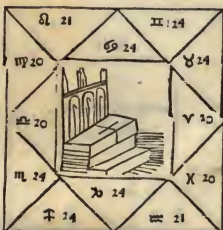 ♌ 21 ♊ 24
♋ 24
♍ 20 ♉ 24
♎ 20 ♈ 20
♏ 24 ♓ 20
♑ 24
♐ 24 ♒ 21